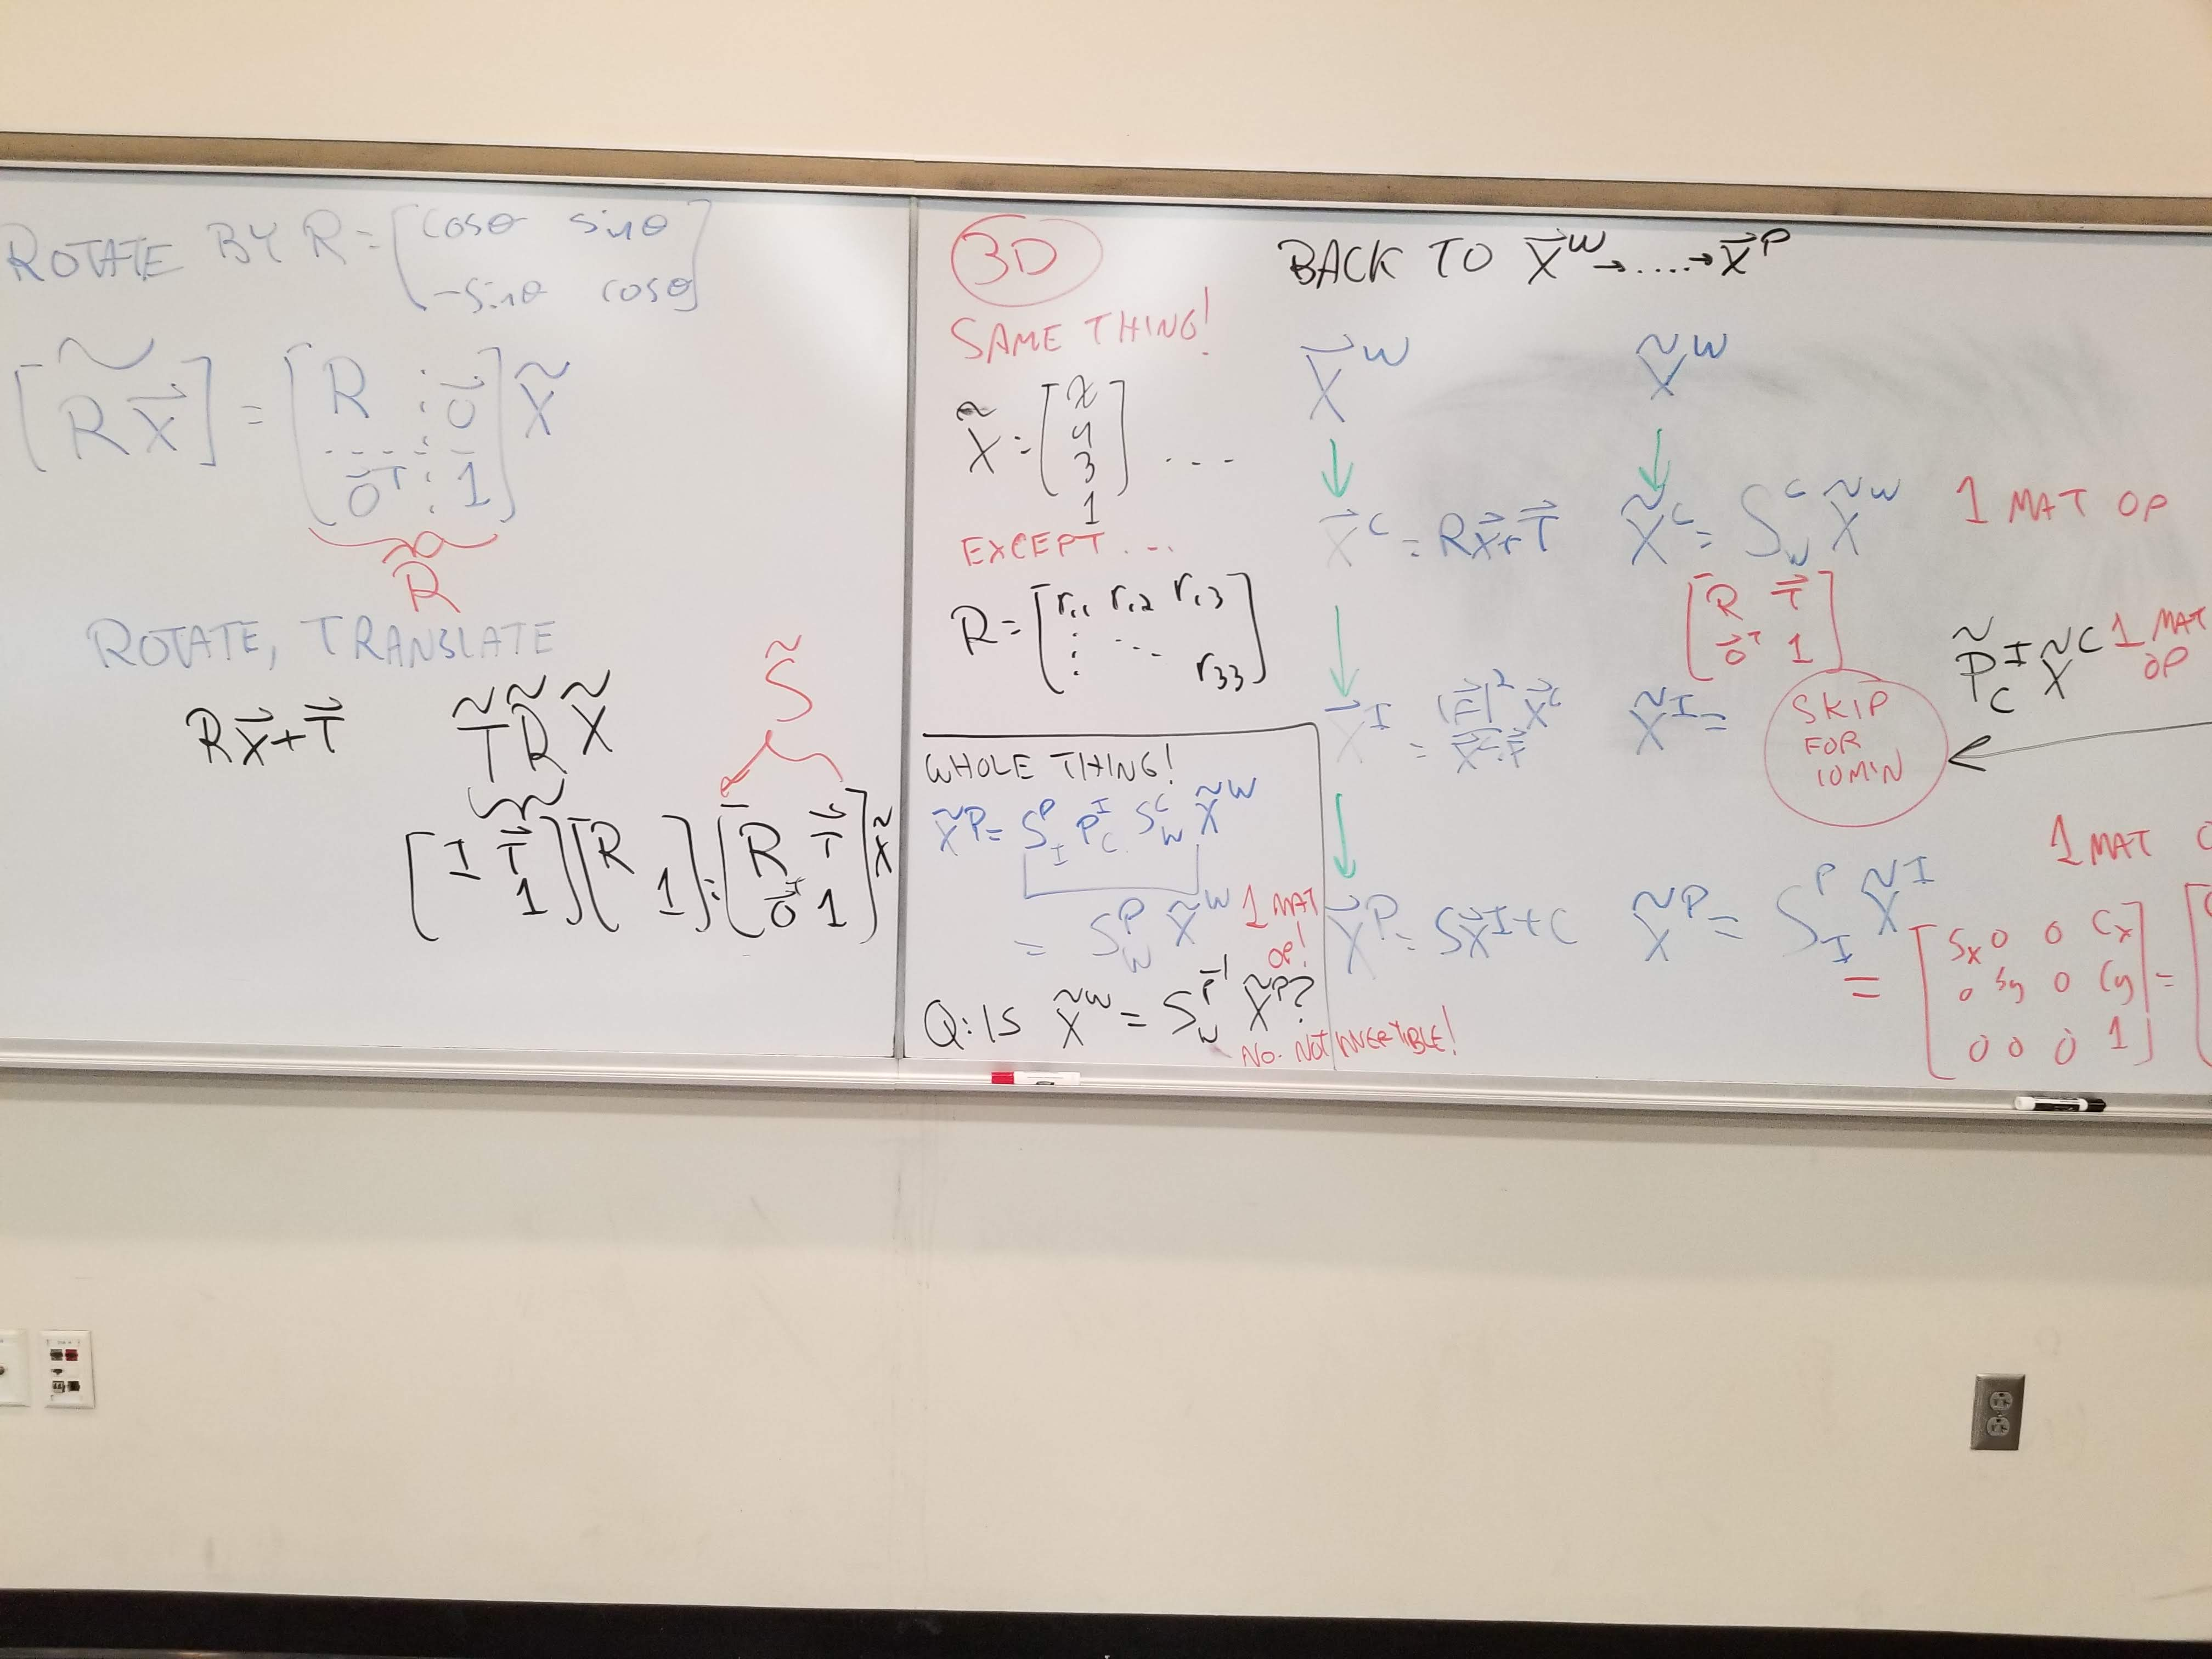 ROTATE BY R = [cosθ sinθ
-sinθ cosθ]
[R X⃗]~ = [R ⋮ 0⃗
0⃗ᵀ ⋮ 1] X̃
R̃
ROTATE, TRANSLATE
RX⃗+T⃗ T̃R̃X̃
S̃
[I T⃗
1][R
1] = [R T⃗
0⃗ᵀ 1] X̃
3D
SAME THING!
X̃ = [x
y
3
1] ...
EXCEPT ...
R = [r₁₁ r₁₂ r₁₃
⋮ ...
r₃₃]
WHOLE THING!
X̃ᴾ = S_I^P P_C^I S_W^C X̃ᵂ
= S_W^P X̃ᵂ 1 MAT
OP!
Q: IS X̃ᵂ = S_W^P⁻¹ X̃ᴾ?
NO. NOT INVERTIBLE!
BACK TO X⃗ᵂ→....→X⃗ᴾ
X⃗ᵂ X̃ᵂ
X⃗ᶜ = RX⃗+T⃗ X̃ᶜ = S_W^C X̃ᵂ 1 MAT OP
[R T⃗
0⃗ᵀ 1]
X⃗ᴵ = |F⃗|² X⃗ᶜ
X⃗ᶜ·F⃗
X̃ᴵ =
SKIP
FOR
10 MIN
P̃_C^I X̃ᶜ 1 MAT
OP
X⃗ᴾ = SX⃗ᴵ+C X̃ᴾ = S_I^P X̃ᴵ
1 MAT
= [Sx 0 0 Cx
0 Sy 0 Cy
0 0 0 1] =